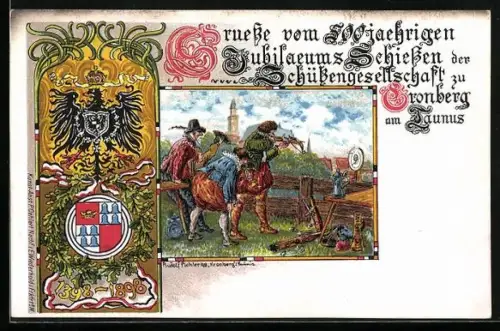 Grueße vom 500jaehrigen
Jubilaeums Schießen der
Schüßengesellschaft zu
Cronberg
am Taunus
1398-1898